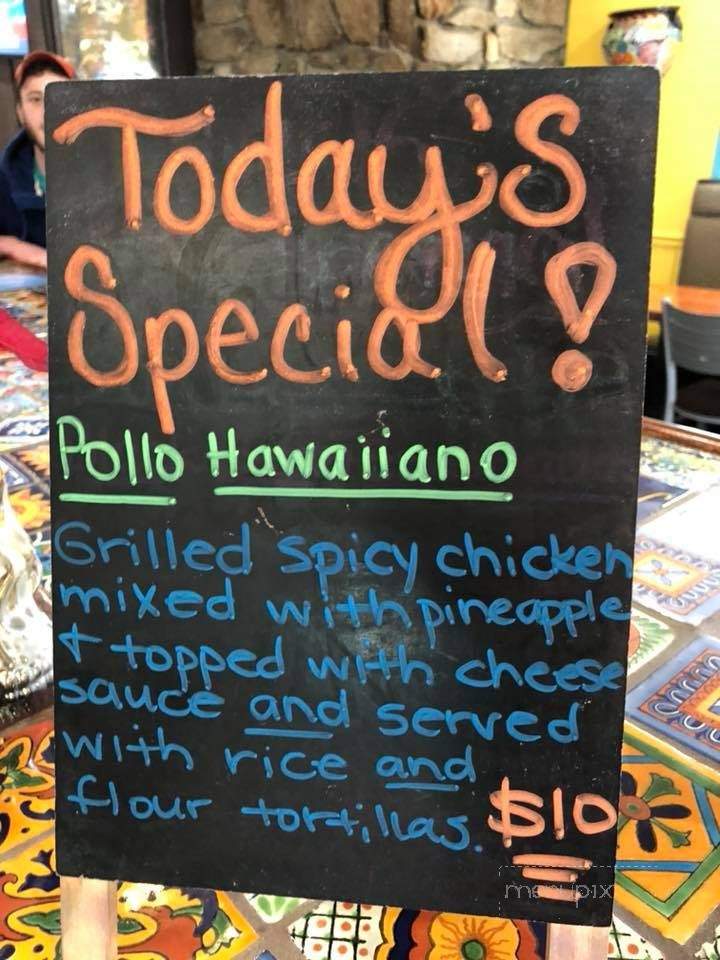 Today's
Special!
Pollo Hawaiiano
Grilled spicy chicken
mixed with pineapple
+ topped with cheese
sauce and served
with rice and
flour tortillas. $10
menupix